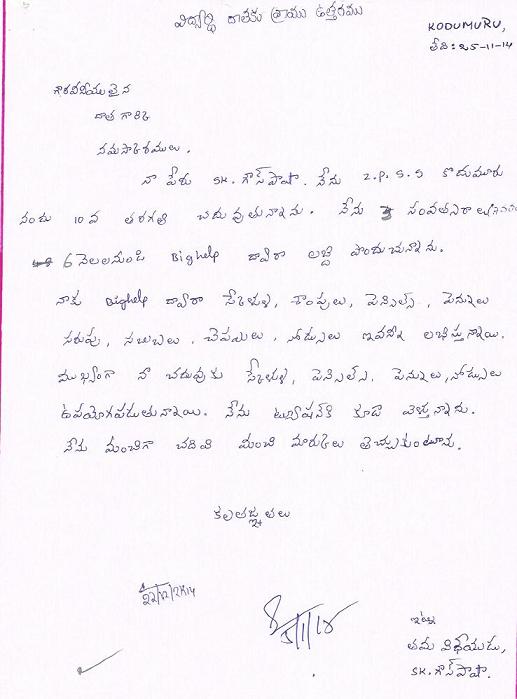 విద్యార్థి దాతకు వ్రాయు ఉత్తరము
KODUMURU,
తేది: 25-11-14
గౌరవనీయులైన
దాత గారికి
నమస్కారములు.
నా పేరు SK. గౌస్ పాషా. నేను Z.P.S.S కొడుమూరు
నందు 10వ తరగతి చదువుతున్నాను. నేను 3 సంవత్సరాల
6 నెలలనుండి Bighelp ద్వారా లబ్ది పొందుచున్నాను.
నాకు Bighelp ద్వారా స్కేళ్ళు, శాంపులు, పెన్సిల్స్, పెన్నులు
సరుపు, సబ్బులు, చెప్పులు, నోట్సులు ఇవన్నీ లభిస్తున్నాయి.
ముఖ్యంగా నా చదువుకు స్కేళ్ళు, పెన్సిల్స్, పెన్నులు, నోట్సులు
ఉపయోగపడుతున్నాయి. నేను ట్యూషన్‌కి కూడా వెళ్తున్నాను.
నేను మంచిగా చదివి మంచి మార్కులు తెచ్చుకుంటాను.
కృతజ్ఞతలు
22/12/2014
ఇట్లు
తమ విధేయుడు,
SK. గౌస్ పాషా.